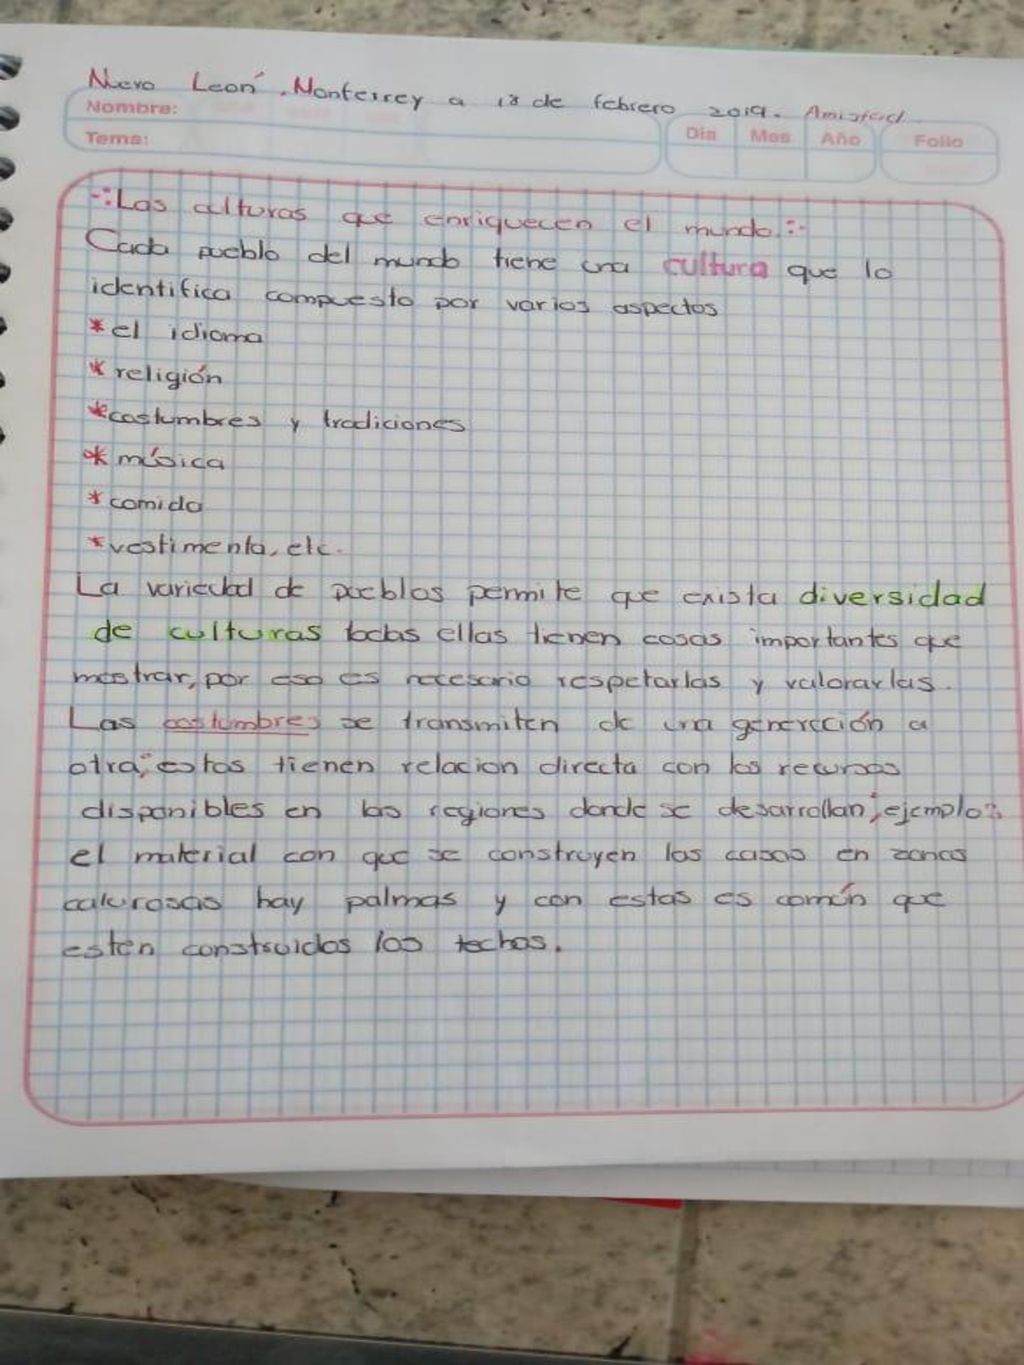 Nuevo León, Monterrey a 18 de febrero 2019. Amistad
Nombre:
Tema:
Día Mes Año Folio
-:Las culturas que enriquecen el mundo:-
Cada pueblo del mundo tiene una cultura que lo
identifica compuesto por varios aspectos
*el idioma
*religión
*costumbres y tradiciones
*música
*comida
*vestimenta, etc.
La variedad de pueblos permite que exista diversidad
de culturas todas ellas tienen cosas importantes que
mostrar, por eso es necesario respetarlas y valorarlas.
Las costumbres se transmiten de una generación a
otra; estas tienen relacion directa con los recursos
disponibles en las regiones donde se desarrollan; ejemplo:
el material con que se construyen las casas en zonas
calurosas hay palmas y con estas es común que
estén construidos los techos.